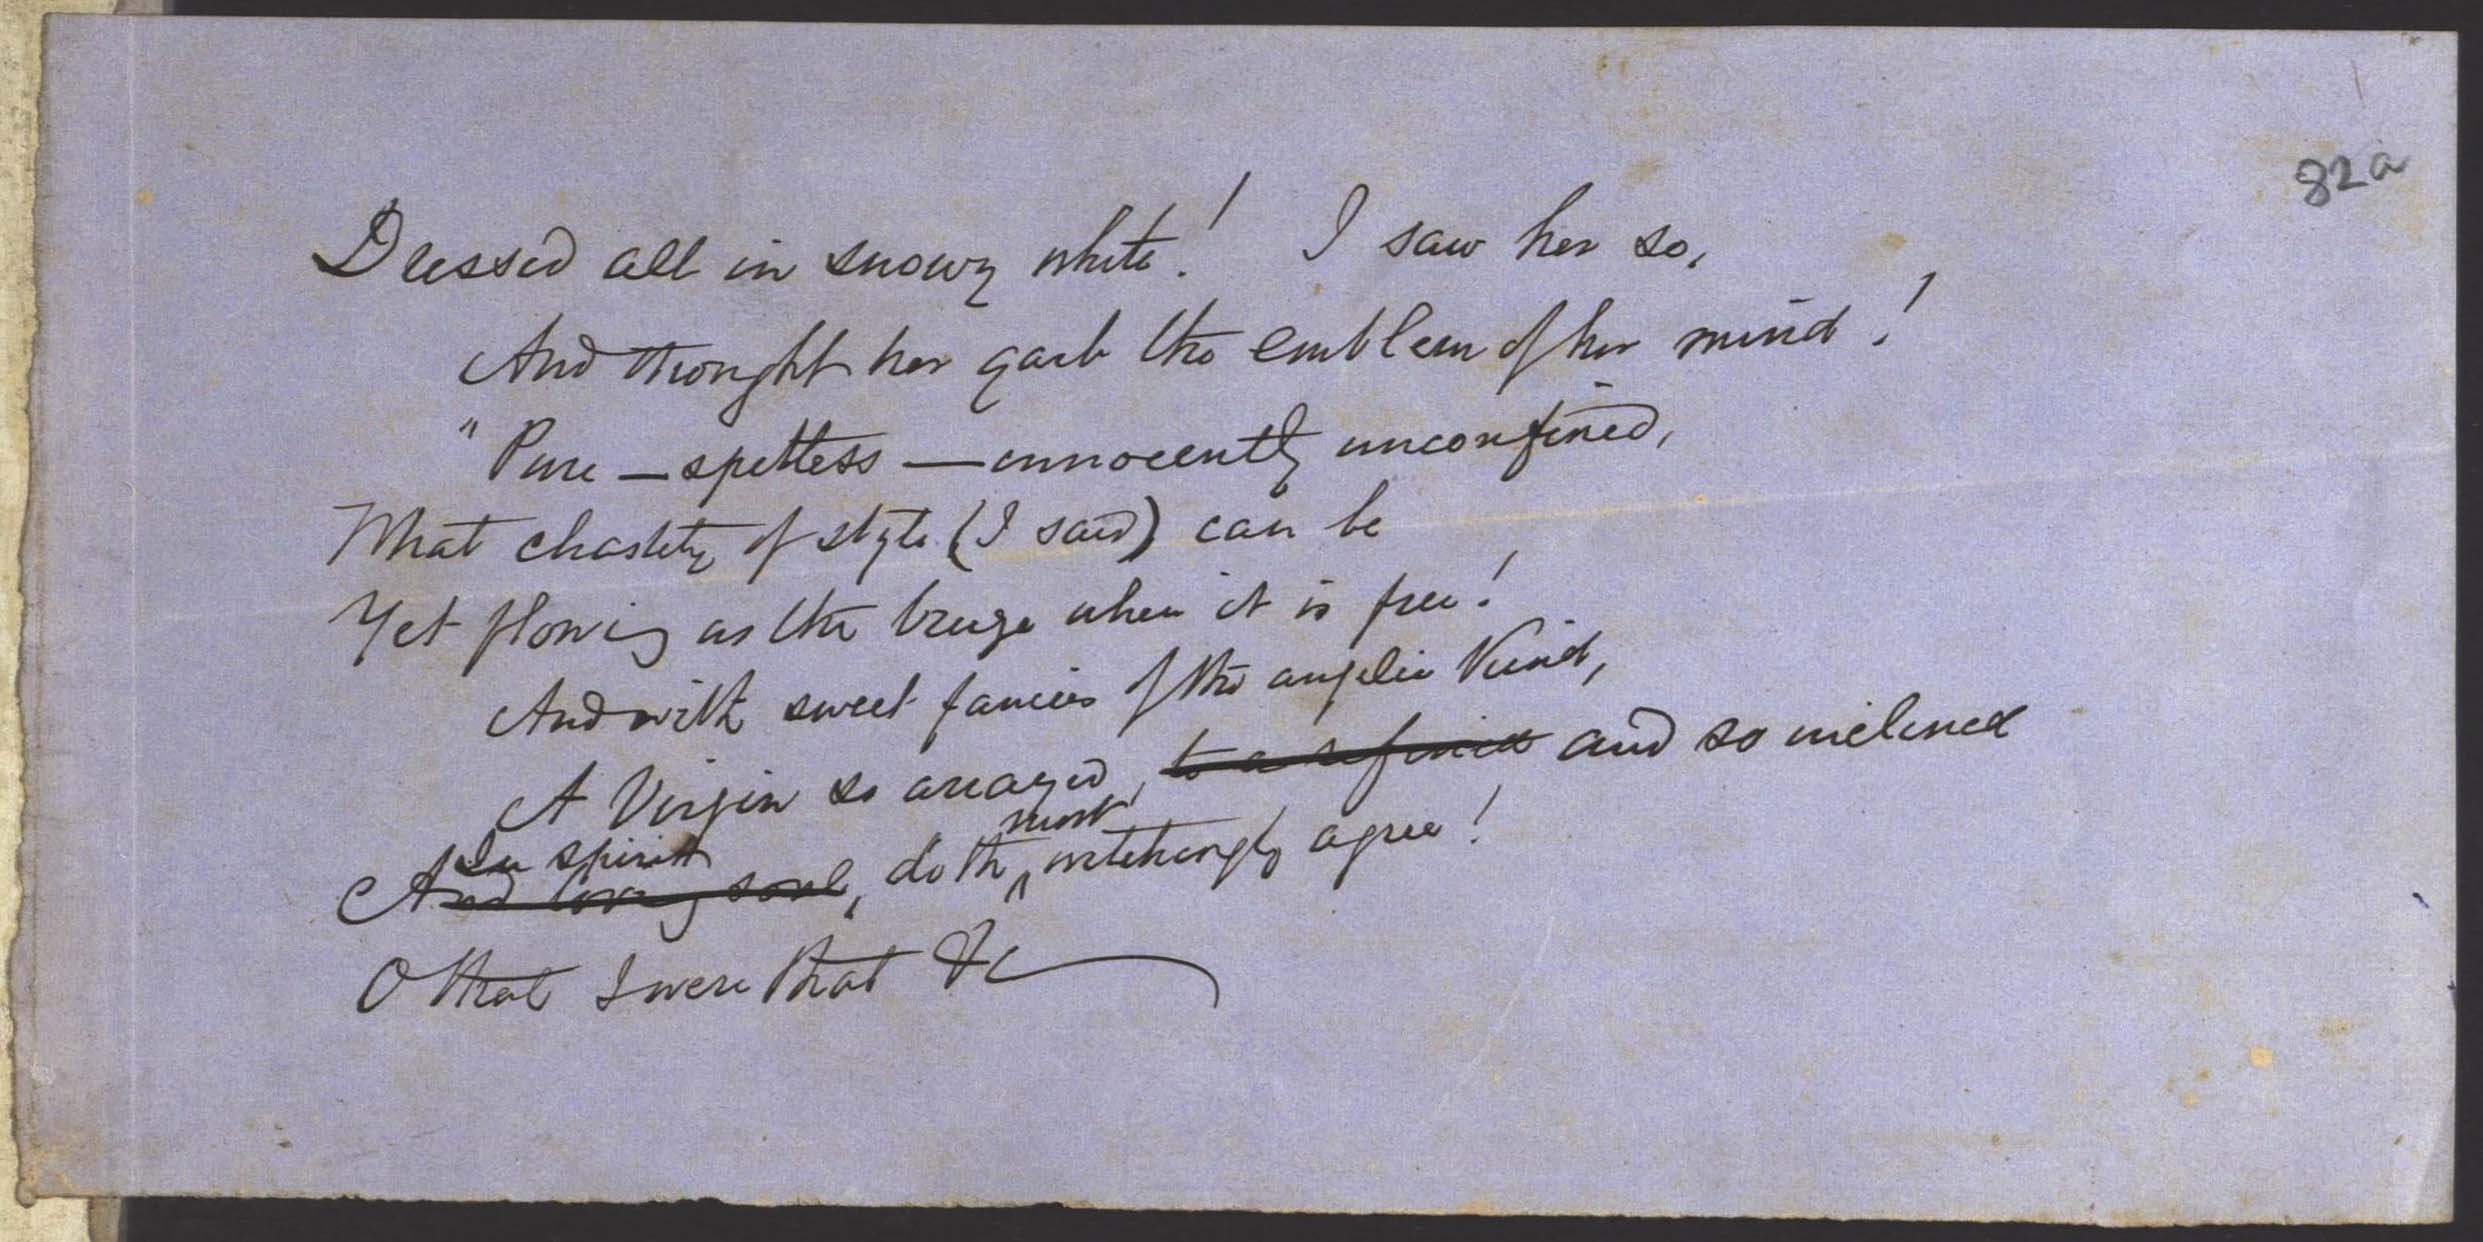 82a
Dressed all in snowy white! I saw her so,
And thought her garb the emblem of her mind!
"Pure — spotless — innocently unconfined,
What chastity of style (I said) can be
Yet flowing as the breeze when it is free!
And with sweet fancies of the angelic kind,
A Virgin so arayed, to a and so inclined
In spirit most
And loving soul, doth witchingly agree!
O that I were that &c